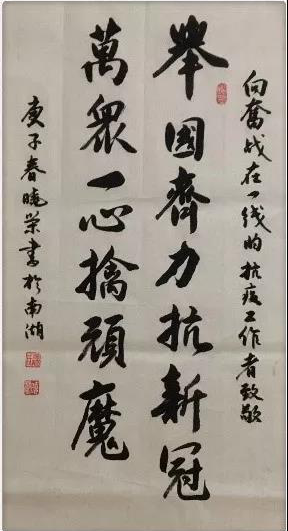 向奋战在一线的抗疫工作者致敬
舉國齊力抗新冠
萬眾一心擒頑魔
庚子春曉榮書於南湖